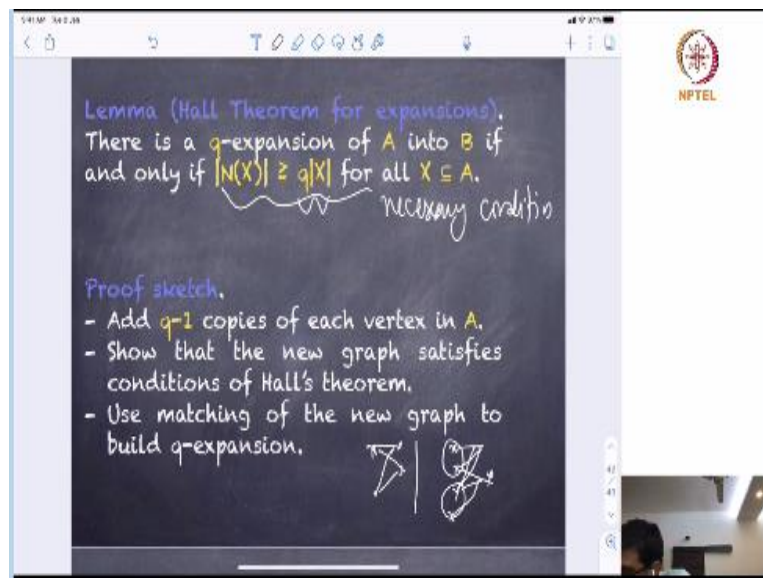 NPTEL
Lemma (Hall Theorem for expansions).
There is a q-expansion of A into B if
and only if |N(X)| ≥ q|X| for all X ⊆ A.
necessary conditio
Proof sketch.
- Add q-1 copies of each vertex in A.
- Show that the new graph satisfies
conditions of Hall's theorem.
- Use matching of the new graph to
build q-expansion.